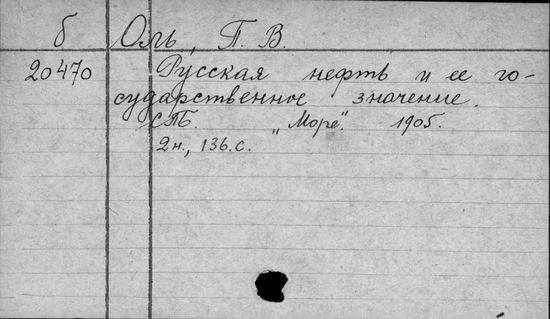 б Оль, П. В.
20470 Русская нефть и ее го-
сударственное значение.
СПБ. „Море". 1905.
2н., 136.с.